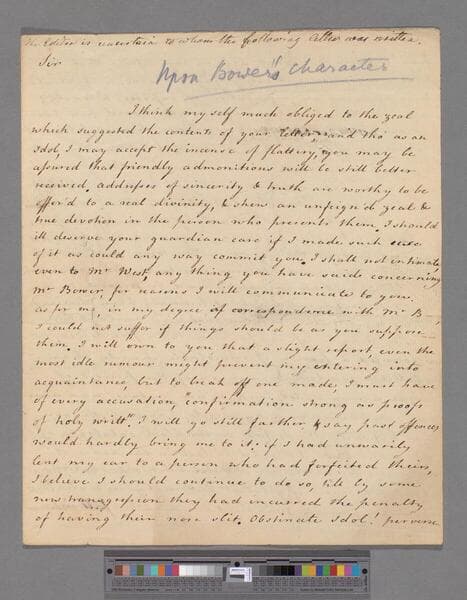 The Editor is uncertain to whom the following letter was written.
Sir
Upon Bower's Character
I think myself much obliged to the zeal
which suggested the contents of your letter, and tho' as an
Idol, I may accept the incense of flattery, you may be
assured that friendly admonitions will be still better
received. addresses of sincerity & truth are worthy to be
offer'd to a real divinity, & shew an unfeign'd zeal &
true devotion in the person who presents them. I should
ill deserve your guardian care if I made such use
of it as could any way commit you. I shall not intimate,
even to Mr West, any thing you have said concerning
Mr Bower, for reasons I will communicate to you.
as for me, in my degree of correspondence with Mr B—
I could not suffer if things should be as you suppose
them. I will own to you that a slight report, even the
most idle rumour might prevent my entering into
acquaintance, but to break off one made, I must have
of every accusation, "confirmation strong as proofs
of holy writt". I will go still farther, & say past offences
would hardly bring me to it: if I had unwarily
lent my ear to a person who had forfeited theirs,
I believe I should continue to do so, till by some
new transgression they had incurred the penalty
of having their nose slit. Obstinate Idol! perverse